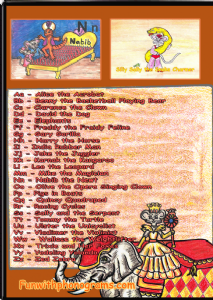 N n
Nabib
Silly Sally the Snake Charmer
Aa - Alice the Acrobat
Bb - Benny the Basketball Playing Bear
Cc - Clarence the Clown
Dd - David the Dog
Ee - Elephants
Ff - Freddy the Fruity Feline
Gg - Gary Gorilla
Hh - Harry the Horse
Ii - India Rubber Man
Jj - Jake the Juggler
Kk - Karneh the Kangaroo
Ll - Leo the Leopard
Mm - Mike the Magician
Nn - Nabib the Newt
Oo - Olive the Opera Singing Clown
Pp - Pigs in Pants
Qq - Quincy Quadropet
Rr - Racing Cyclist
Ss - Sally and the Serpent
Tt - Tommy the Turtle
Uu - Ulster the Unicyclist
Vv - Vladimer the Violinist
Ww - Wallace the Weightlifter
Xx - Trixie and Maxie
Yy - Yodeling
Zz - Zed
Funwithphonograms.com